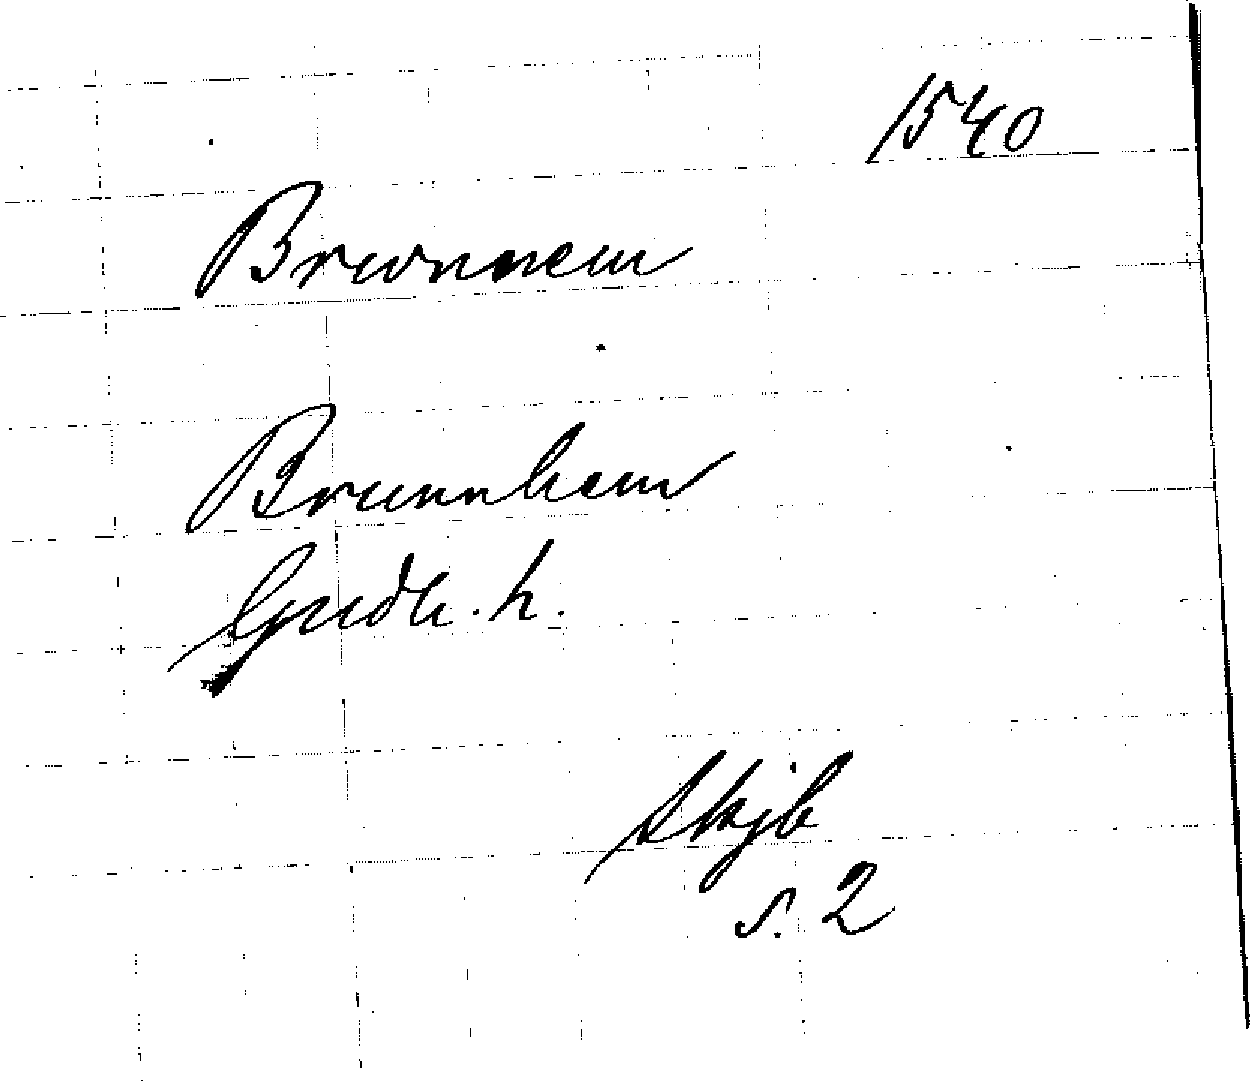 1540
Brwnnem
Brunnhem
Gudh. h.
Skjb
s. 2